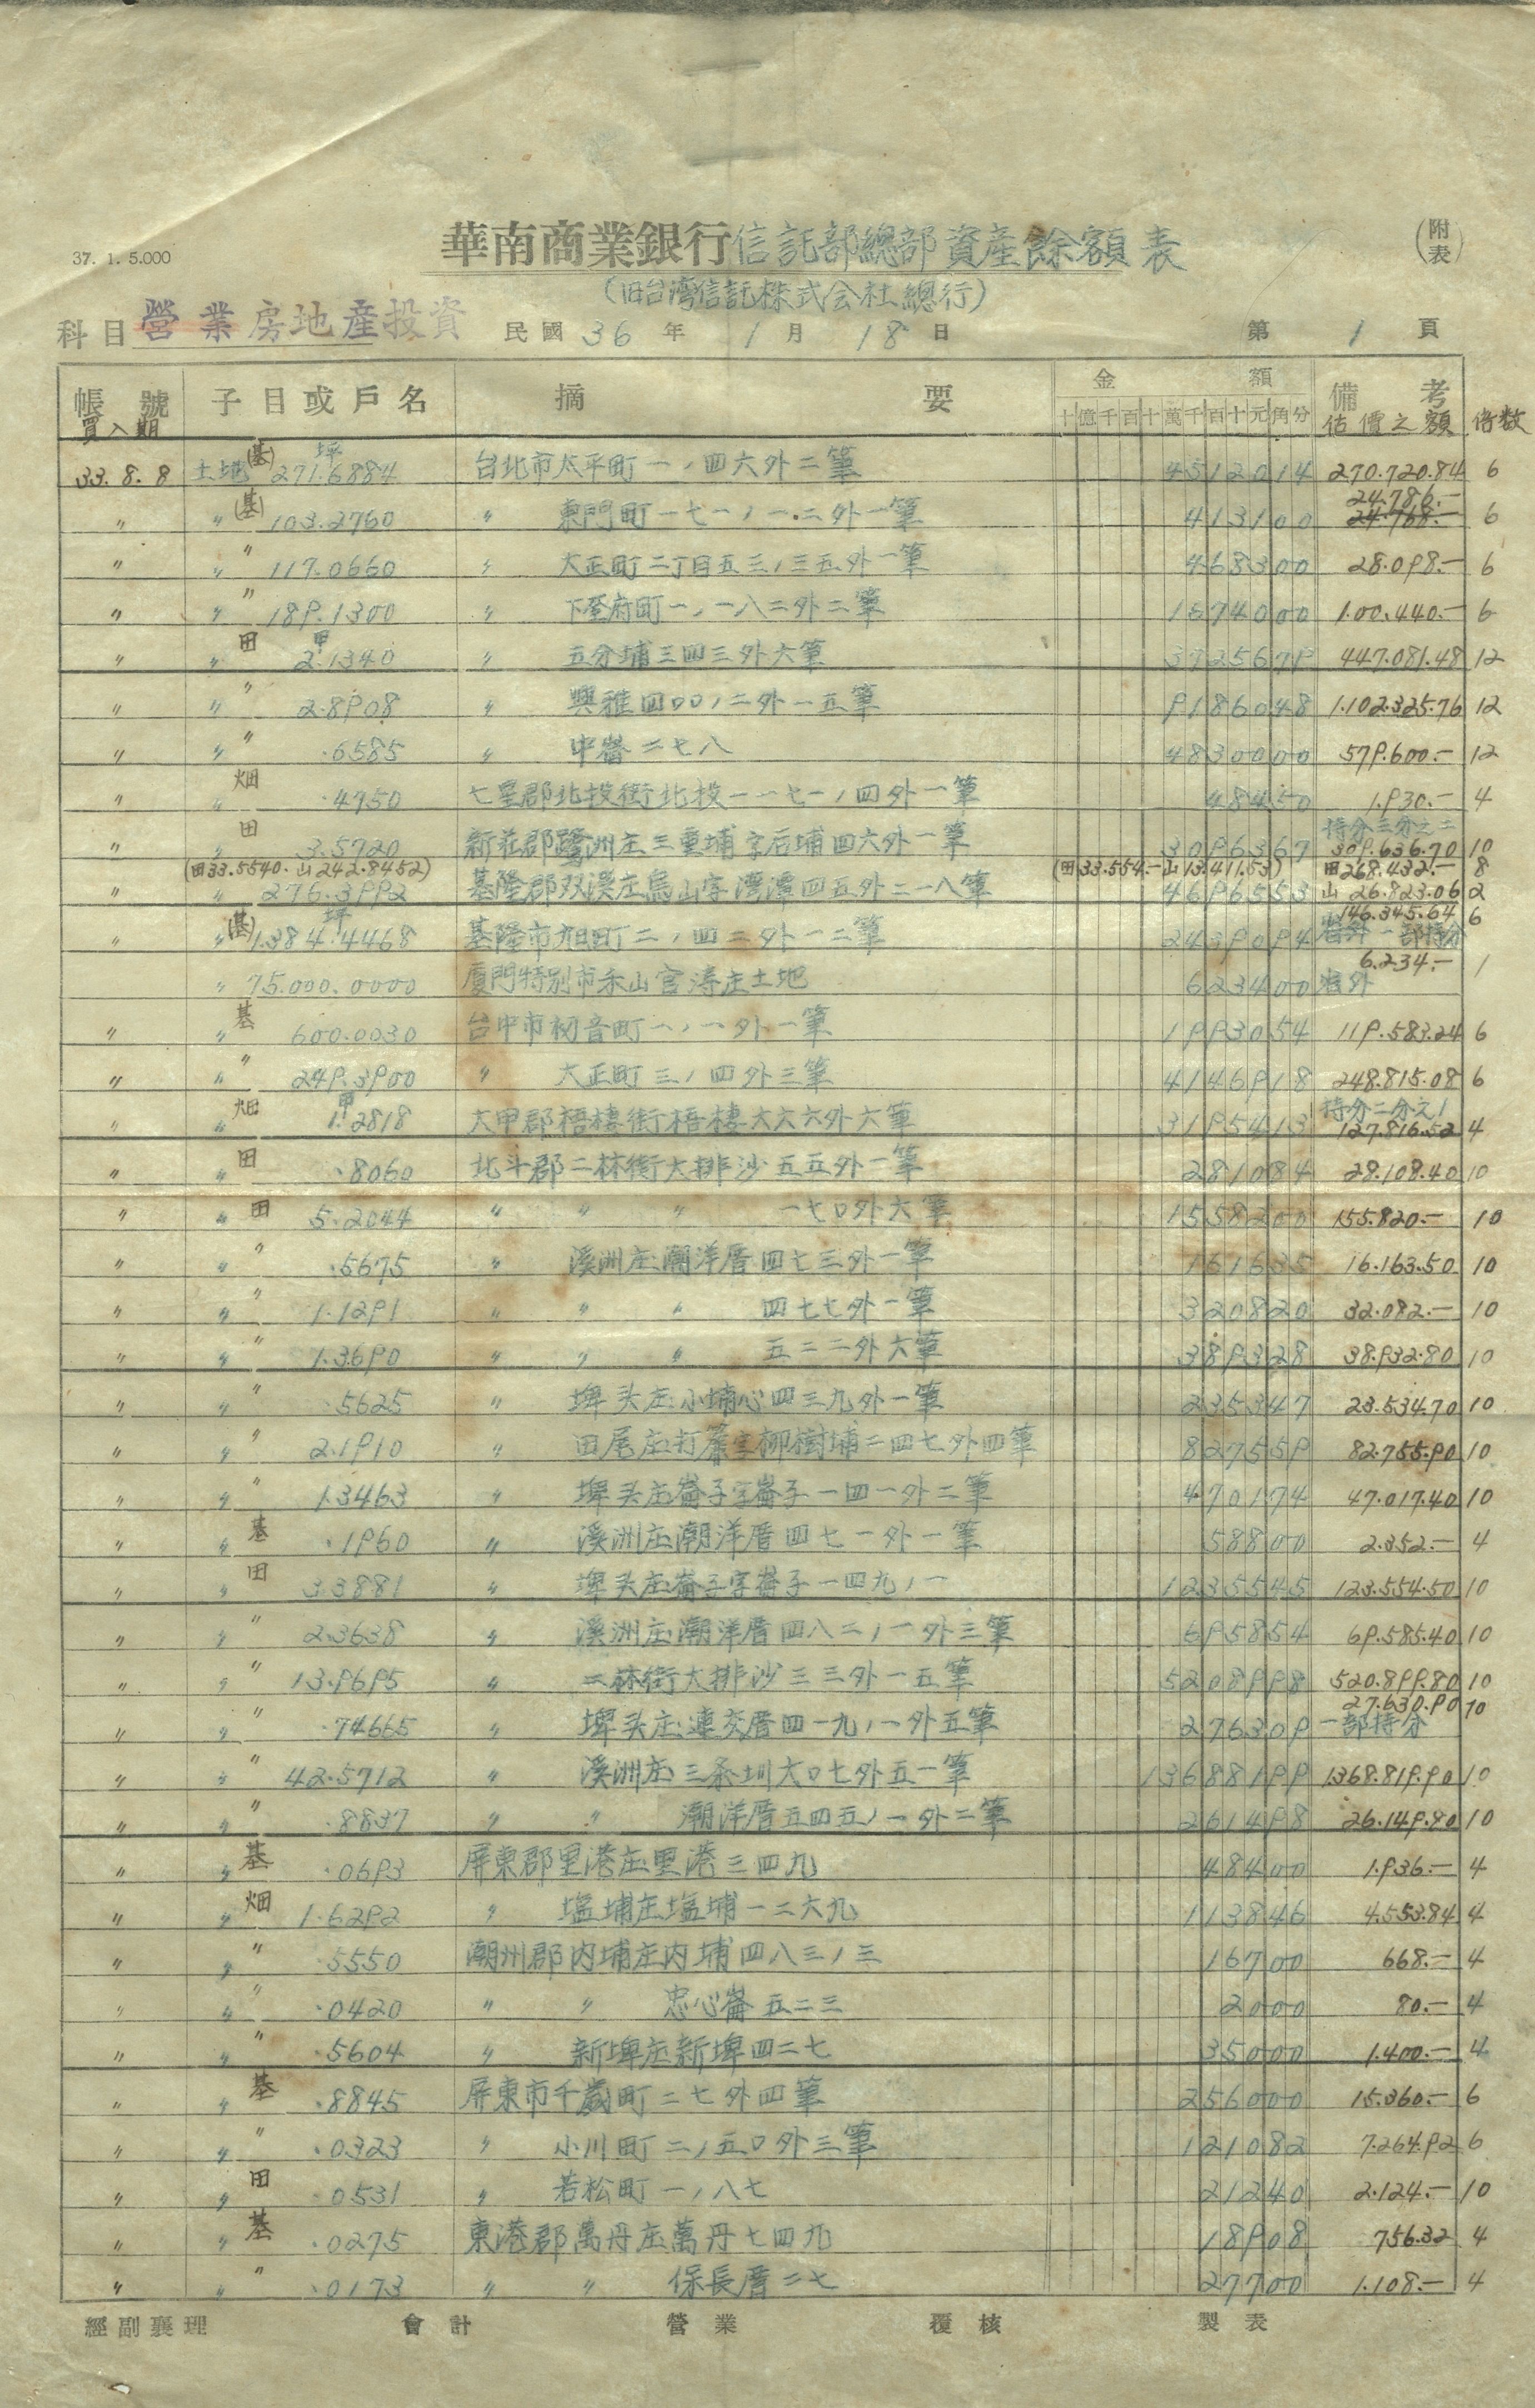 37. 1. 5.000
華南商業銀行信託部總部資產餘額表
(附表)
(旧台湾信託株式会社總行)
科目 營業房地產投資 民國 36 年 1 月 18 日 第 1 頁
帳號 子目或戶名 摘要 金額 備考
十億千百十萬千百十元角分
買入期 估價之額 倍数
33. 8. 8 土地 (基) 坪 271.6884 台北市太平町一ノ四六外二筆 4512014 270.720.84 6
24.786.—
〃 〃 (基) 103.2760 〃 東門町一七一ノ一.二外一筆 413100 24.768.— 6
〃 〃 〃 117.0660 〃 大正町二丁目五三ノ三五外一筆 468300 28.098.— 6
〃 〃 〃 189.1300 〃 下奎府町一ノ一八二外二筆 1674000 1.00.440.— 6
〃 〃 田 甲 2.1340 〃 五分埔三四三外六筆 3725679 447.081.48 12
〃 〃 〃 2.8908 〃 興雅四〇〇ノ二外一五筆 9186048 1.102.325.76 12
〃 〃 〃 .6585 〃 中崙二七八 4830000 579.600.— 12
〃 〃 畑 .4750 七星郡北投街北投一一七一ノ四外一筆 48450 1.930.— 4
持分三分之二
〃 〃 田 3.5720 新莊郡鷺洲庄三重埔字后埔四六外一筆 3096367 309.636.70 10
(田33.5540. 山242.8452) (田33.554.— 山13.411.53) 田268.432.— 8
〃 〃 276.3992 基隆郡双溪庄烏山字湾潭四五外二一八筆 4696553 山 26.823.06 2
146.345.64 6
〃 〃 (基) 坪 1.384.4468 基隆市旭町二ノ四二外一二筆 2439094 省外一部持分
6.234.— 1
〃 75.000.0000 廈門特別市禾山官潯庄土地 623400 省外
〃 〃 基 600.0030 台中市初音町一ノ一外一筆 1993054 119.583.24 6
〃 〃 〃 249.3900 〃 大正町三ノ四外三筆 4146918 248.815.08 6
持分二分之1
〃 〃 畑 甲 1.2818 大甲郡梧棲街梧棲六六六外六筆 3195413 127.816.52 4
〃 〃 田 .8060 北斗郡二林街大排沙五五外一筆 281084 28.108.40 10
〃 〃 田 5.2044 〃 〃 〃 一七〇外六筆 1558200 155.820.— 10
〃 〃 〃 .5675 〃 溪洲庄潮洋厝四七三外一筆 161635 16.163.50 10
〃 〃 〃 1.1291 〃 〃 〃 四七七外一筆 320820 32.082.— 10
〃 〃 〃 1.3690 〃 〃 〃 五二二外六筆 389328 38.932.80 10
〃 〃 〃 .5625 〃 埤头庄小埔心四三九外一筆 235347 23.534.70 10
〃 〃 〃 2.1910 〃 田尾庄打簾字柳樹埔二四七外四筆 827559 82.755.90 10
〃 〃 〃 1.3463 〃 埤头庄崙子字崙子一四一外二筆 470174 47.017.40 10
〃 〃 基 .1960 〃 溪洲庄潮洋厝四七一外一筆 58800 2.352.— 4
〃 〃 田 3.3881 〃 埤头庄崙子字崙子一四九ノ一 1235545 123.554.50 10
〃 〃 〃 2.3638 〃 溪洲庄潮洋厝四八二ノ一外三筆 695854 69.585.40 10
〃 〃 〃 13.9695 〃 二林街大排沙三三外一五筆 5208998 520.899.80 10
27.630.90 10
〃 〃 〃 .74665 〃 埤头庄連交厝四一九ノ一外五筆 276309 一部持分
〃 〃 〃 42.5712 〃 溪洲庄三条圳六〇七外五一筆 13688199 1368.819.90 10
〃 〃 〃 .8837 〃 〃 潮洋厝五四五ノ一外二筆 261498 26.149.80 10
〃 〃 基 .0693 屏東郡里港庄里港三四九 48400 1.936.— 4
〃 〃 畑 1.6292 〃 塩埔庄塩埔一二六九 113846 4.553.84 4
〃 〃 〃 .5550 潮州郡内埔庄内埔四八三ノ三 16700 668.— 4
〃 〃 〃 .0420 〃 〃 忠心崙五二三 2000 80.— 4
〃 〃 〃 .5604 〃 新埤庄新埤四二七 35000 1.400.— 4
〃 〃 基 .8845 屏東市千歲町二七外四筆 256000 15.360.— 6
〃 〃 〃 .0323 〃 小川町二ノ五〇外三筆 121082 7.264.92 6
〃 〃 田 .0531 〃 若松町一ノ八七 21240 2.124.— 10
〃 〃 基 .0275 東港郡萬丹庄萬丹七四九 18908 756.32 4
〃 〃 〃 .0173 〃 〃 保長厝二七 27700 1.108.— 4
經副襄理 會計 營業 覆核 製表